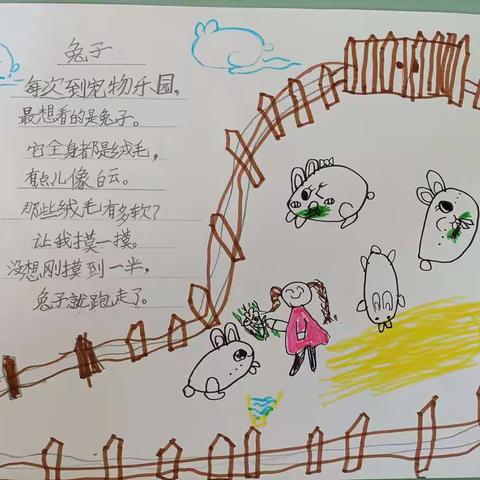 兔子
每次到宠物乐园，
最想看的是兔子。
它全身都是绒毛，
有点儿像白云。
那些绒毛有多软？
让我摸一摸。
没想刚摸到一半，
兔子就跑走了。